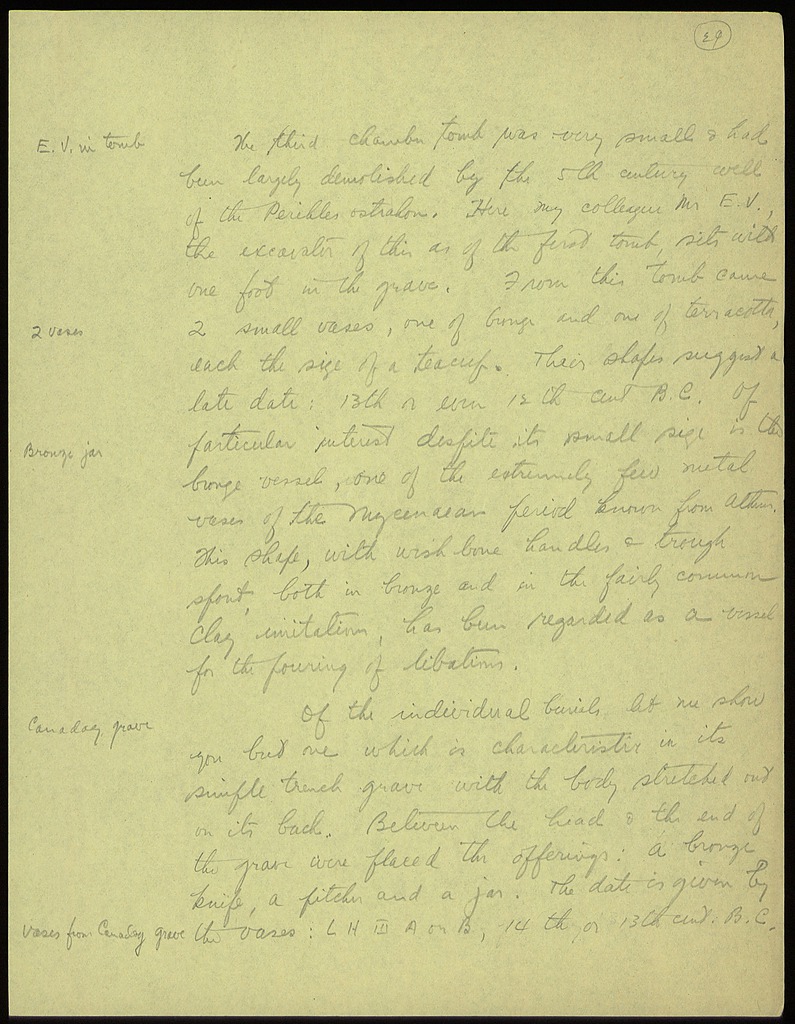 29
E. V. in tomb
The third chamber tomb was very small & had
been largely demolished by the 5th century well
of the Perikles ostrakon. Here my colleague Mr E. V.,
the excavator of this as of the first tomb, sits with
one foot in the grave. From this tomb came
2 vases
2 small vases, one of bronze and one of terracotta,
each the size of a teacup. Their shapes suggest a
late date: 13th or even 12th cent B.C. Of
Bronze jar
particular interest despite its small size is the
bronze vessel, one of the extremely few metal
vases of the Mycenaean period known from Athens.
This shape, with wish bone handles & trough
spout, both in bronze and in the fairly common
clay imitations, has been regarded as a vessel
for the pouring of libations.
Canaday grave
Of the individual burials let me show
you but one which is characteristic in its
simple trench grave with the body stretched out
on its back. Between the head & the end of
the grave were placed the offerings: a bronze
knife, a pitcher and a jar. The date is given by
vases from Canaday grave
the vases: L H III A or B, 14 th or 13th cent. B.C.